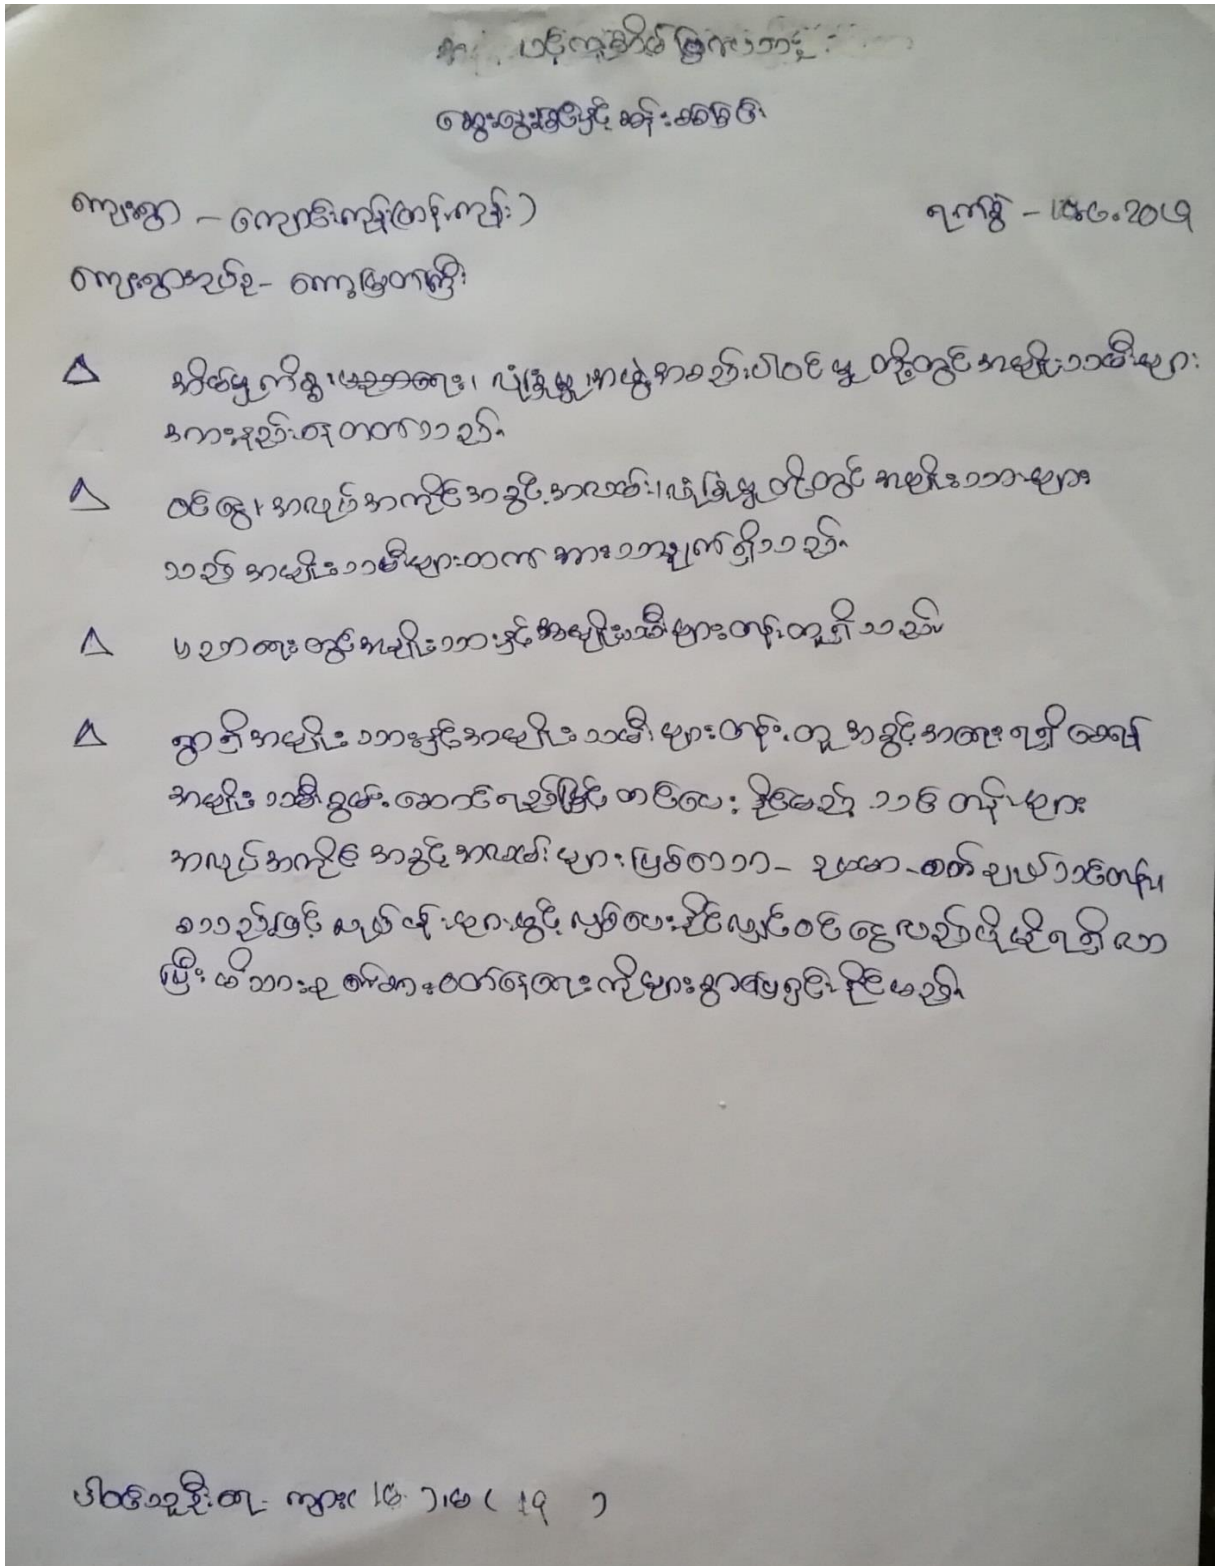 ဆွေးနွေးခြင်းနှင့် ဆန်းစစ်ခြင်း
ကျေးရွာ - ကျောင်းကုန်း(တန်းကုန်း)
ရက်စွဲ -
ကျေးရွာအုပ်စု - ကော့မြတကြီး
△ အိမ်မှုကိစ္စ၊ ပညာရေး၊ လုံခြုံမှု၊ အဖွဲ့အစည်းပါဝင်မှု တို့တွင် အမျိုးသမီးများ
အားနည်းနေတတ်သည်။
△ ဝင်ငွေ၊ အလုပ်အကိုင်အခွင့်အလမ်း၊ လုံခြုံမှု တို့တွင် အမျိုးသားများ
သည် အမျိုးသမီးများထက် အားသာချက်ရှိသည်။
△ ပညာရေးတွင်အမျိုးသားနှင့်အမျိုးသမီးများတန်းတူရှိသည်။
△ ရွာရှိအမျိုးသားနှင့်အမျိုးသမီးများတန်းတူ အခွင့်အရေးရရှိစေရန်
အမျိုးသမီးစွမ်းဆောင်ရည်မြှင့်တင်ပေးနိုင်မည့် သင်တန်းများ
အလုပ်အကိုင် အခွင့်အလမ်းများဖြစ်သော - ဥပမာ - စက်ချုပ်သင်တန်း၊
စသည်ဖြင့် လုပ်ငန်းများဖွင့်လှစ်ပေးနိုင်လျှင်ဝင်ငွေလည်ပိုမိုရရှိလာ
ပြီး မိသားစု စားဝတ်နေရေးကိုများစွာဖြေရှင်းနိုင်မည်။
ပါဝင်သူဦးရေ - ကျား( ) မ ( )